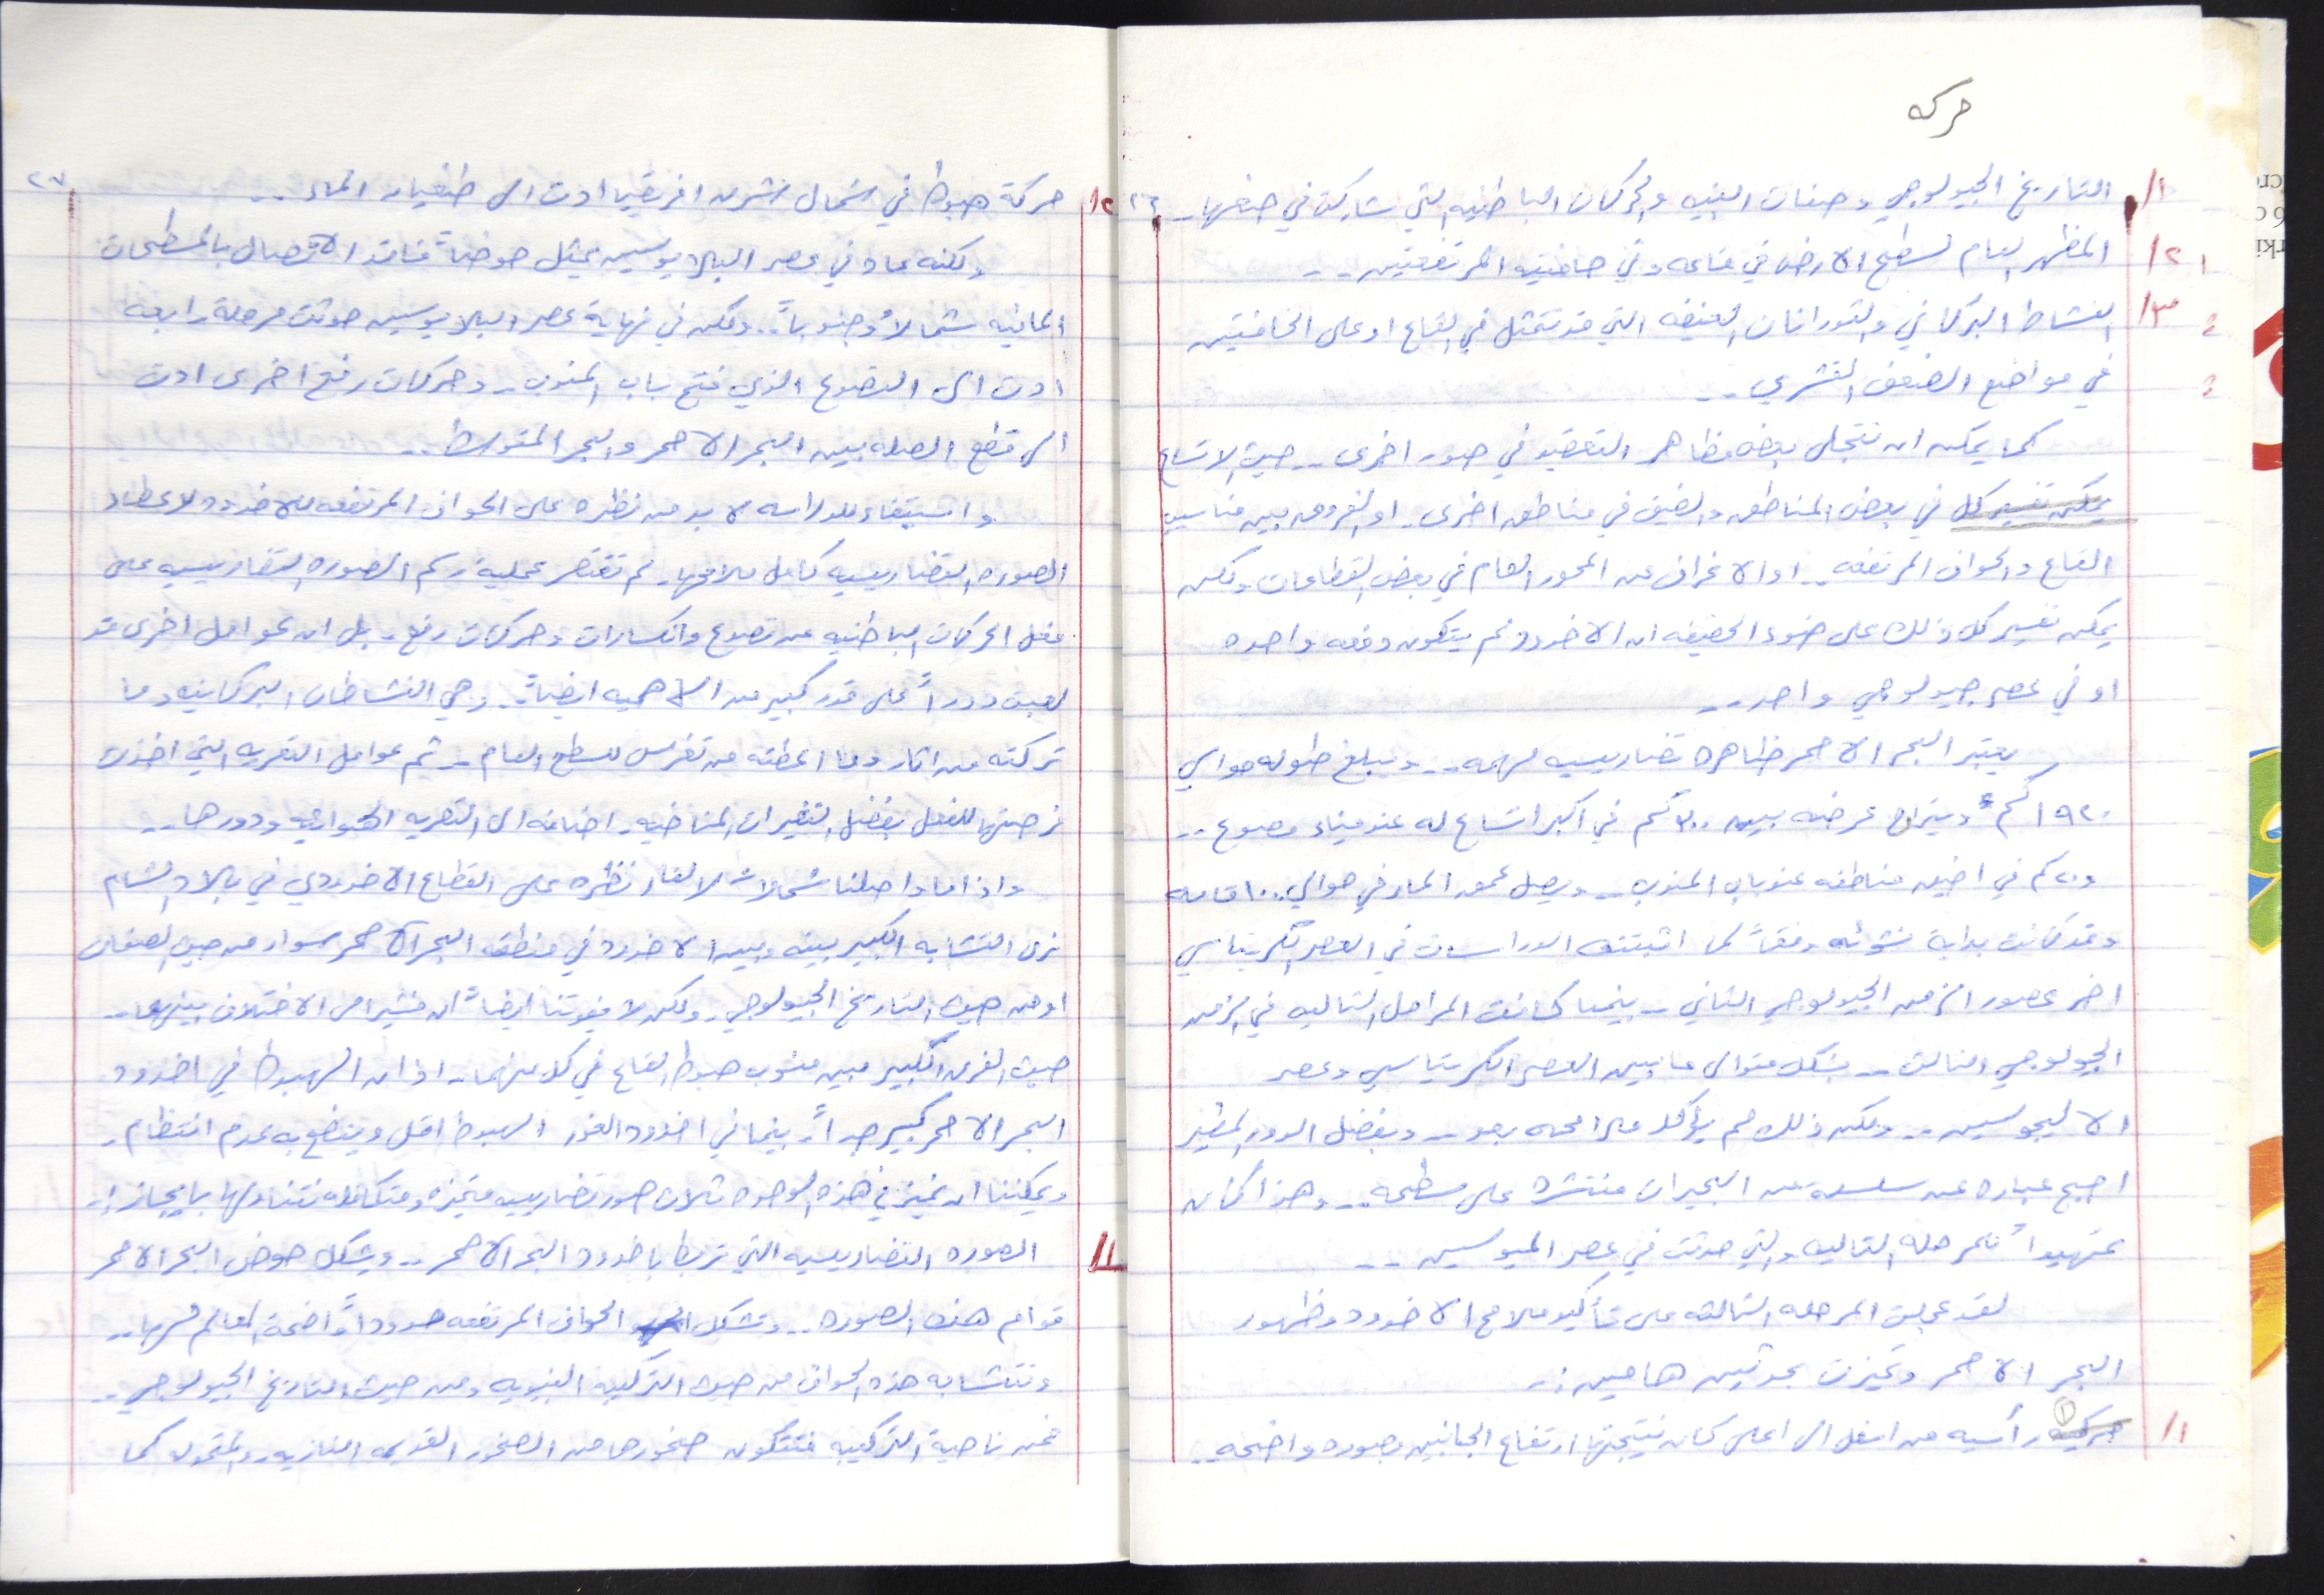 حركه
٢٦
١/ التاريخ الجيولوجي وصفات البنيه والحركات الباطنيه التي شاركت في صنعها ..
٢/ المظهر العام لسطح الارض في قاعه وفي حافتيه المرتفعتين ...
٣/ النشاط البركاني والثورانات العنيفه التي قد تتمثل في القاع او على الحافتين
في مواضع الضعف القشري ..
كما يمكن ان تتجلى بعض مظاهر التعقيد في صور اخرى .. حيث الاتساع
يمكن تفسير كل في بعض المناطق والضيق في مناطق اخرى . او الفروق بين مناسيب
القاع والحواف المرتفعه .. او الانحراف عن المحور العام في بعض القطاعات ولكن
يمكن تفسير كل ذلك على ضوء الحقيقه ان الاخدود لم يتكون دفعه واحده
او في عصر جيولوجي واحد ..
يعتبر البحر الاحمر ظاهره تضاريسيه مهمه .. ويبلغ طوله حوالي
١٩٢٠ كم ويتراوح عرضه بين ٣٠٠ كم في اكبر اتساع له عند ميناء مصوع ..
و٢٠ كم في اضيق مناطقه عند باب المندب .. ويصل عمق الماء في حوالي ١٠٠٠ قامه
وقد كانت بداية نشوئه وفقاً كما اثبتته الدراسات في العصر الكريتاسي
اخر عصور الزمن الجيولوجي الثاني .. بينما كانت المراحل التاليه في الزمن
الجيولوجي الثالث .. بشكل متوالي ما بين العصر الكريتاسي وعصر
الاليجوسين .. ولكن ذلك لم يؤكد ملامحه بعد .. وبفضل الدور المطير
اصبح عباره عن سلسلة من البحيرات منتشره على سطحه .. وهذا كان
تمهيداً للمرحله التاليه والتي حدثت في عصر الميوسين ...
لقد عملت المرحله الثالثه على تأكيد ملامح الاخدود وظهور
البحر الاحمر وتميزت بحدثين هامين :-
١/ حركيه ① رأسيه من اسفل الى اعلى كان نتيجتها ارتفاع الجانبين بصوره واضحه ..
٢٧
٢/ حركة هبوط في شمال شرق افريقيا ادت الى طغيان الماء ..
ولكنه عاد في عصر البلايوسين يمثل حوضاً فاقد الاتصال بالمسطحات
المائيه شمالاً وجنوباً .. ولكن في نهاية عصر البلايوسين حدثت مرحلة رابعه
ادت الى التصدع الذي فتح باب المندب .. وحركات رفع اخرى ادت
الى قطع الصله بين البحر الاحمر والبحر المتوسط ..
واستيفاء للدراسه لا بد من نظره على الحواف المرتفعه للاخدود لاعطاء
الصوره التضاريسيه كامل ملامحها . لم تقتصر عملية رسم الصوره التضاريسيه على
فعل الحركات الباطنيه من تصدع وانكسارات وحركات رفع . بل ان عوامل اخرى قد
لعبت دوراً على قدر كبير من الاهميه ايضاً .. وهي النشاطات البركانيه وما
تركته من اثار وما اعطته من تضرس للسطح العام .. ثم عوامل التعريه التي اخذت
فرصتها للفعل بفضل التغيرات المناخيه . اضافه الى التعريه الهوائيه ودورها ..
واذا ما واصلنا شمالاً لالقاء نظره على القطاع الاخدودي في بلاد الشام
نرى التشابه الكبير بينه وبين الاخدود في منطقه البحر الاحمر سواء من حيث الصفات
او من حيث التاريخ الجيولوجي . ولكن لا يفوتنا ايضاً ان نشير الى الاختلاف بينهما ..
حيث الفرق الكبير بين منسوب هبوط القاع في كلا منهما . اذ ان الهبوط في اخدود
البحر الاحمر كبير جداً . بينما في اخدود الغور الهبوط اقل ويتضح به عدم انتظام .
ويمكننا ان نميز في هذه الوجوه ثلاث صور تضاريسيه متميزه ومتكامله نتناولها بايجاز :-
١/ الصوره التضاريسيه التي تربط باخدود البحر الاحمر .. ويشكل حوض البحر الاحمر
قوام هذه الصوره .. وتشكل الحواف المرتفعه حدوداً واضحة المعالم لها ..
وتتشابه هذه الحواف من حيث التركيب البنيويه ومن حيث التاريخ الجيولوجي .
فمن ناحية التركيب فتتكون صخورها من الصخور القديمه الناريه والمتحوله كما